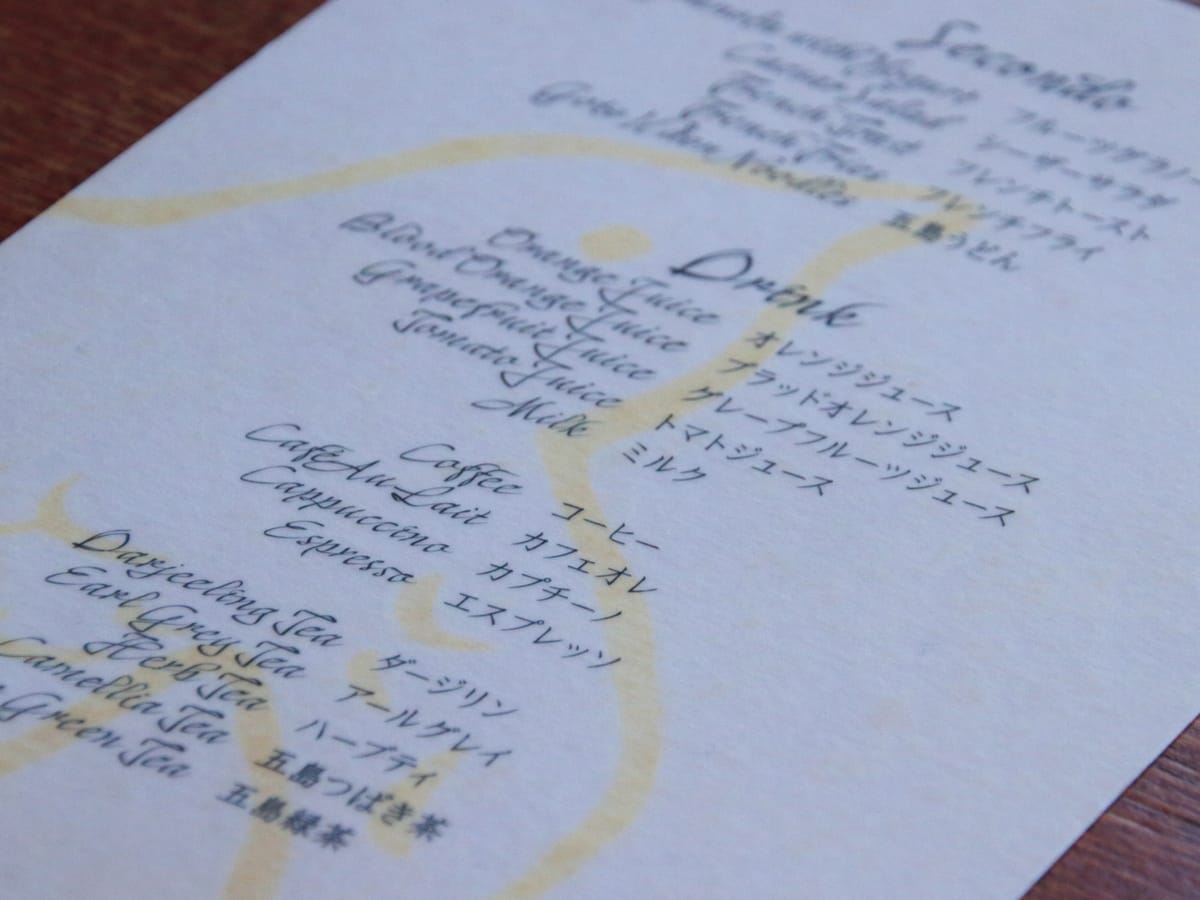 Secondo
Yogurt フルーツグラノー
Caesar Salad シーザーサラダ
French Toast フレンチトースト
French Fries フレンチフライ
Goto Udon Noodles 五島うどん
Drink
Orange Juice オレンジジュース
Blood Orange Juice ブラッドオレンジジュース
Grapefruit Juice グレープフルーツジュース
Tomato Juice トマトジュース
Milk ミルク
Coffee コーヒー
Café Au Lait カフェオレ
Cappuccino カプチーノ
Espresso エスプレッソ
Darjeeling Tea ダージリン
Earl Grey Tea アールグレイ
Herb Tea ハーブティ
Camellia Tea 五島つばき茶
Green Tea 五島緑茶